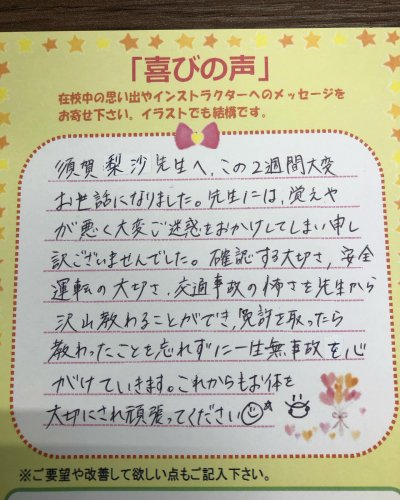 「喜びの声」
在校中の思い出やインストラクターへのメッセージを
お寄せ下さい。イラストでも結構です。
須賀梨沙先生へ、この2週間大変
お世話になりました。先生には、覚えや
が悪く大変ご迷惑をおかけしてしまい申し
訳ございませんでした。確認する大切さ、安全
運転の大切さ、交通事故の怖さを先生から
沢山教わることができ、免許を取ったら
教わったことを忘れずに一生無事故を心
がけていきます。これからもお体を
大切にされ頑張ってください
※ご要望や改善して欲しい点もご記入下さい。